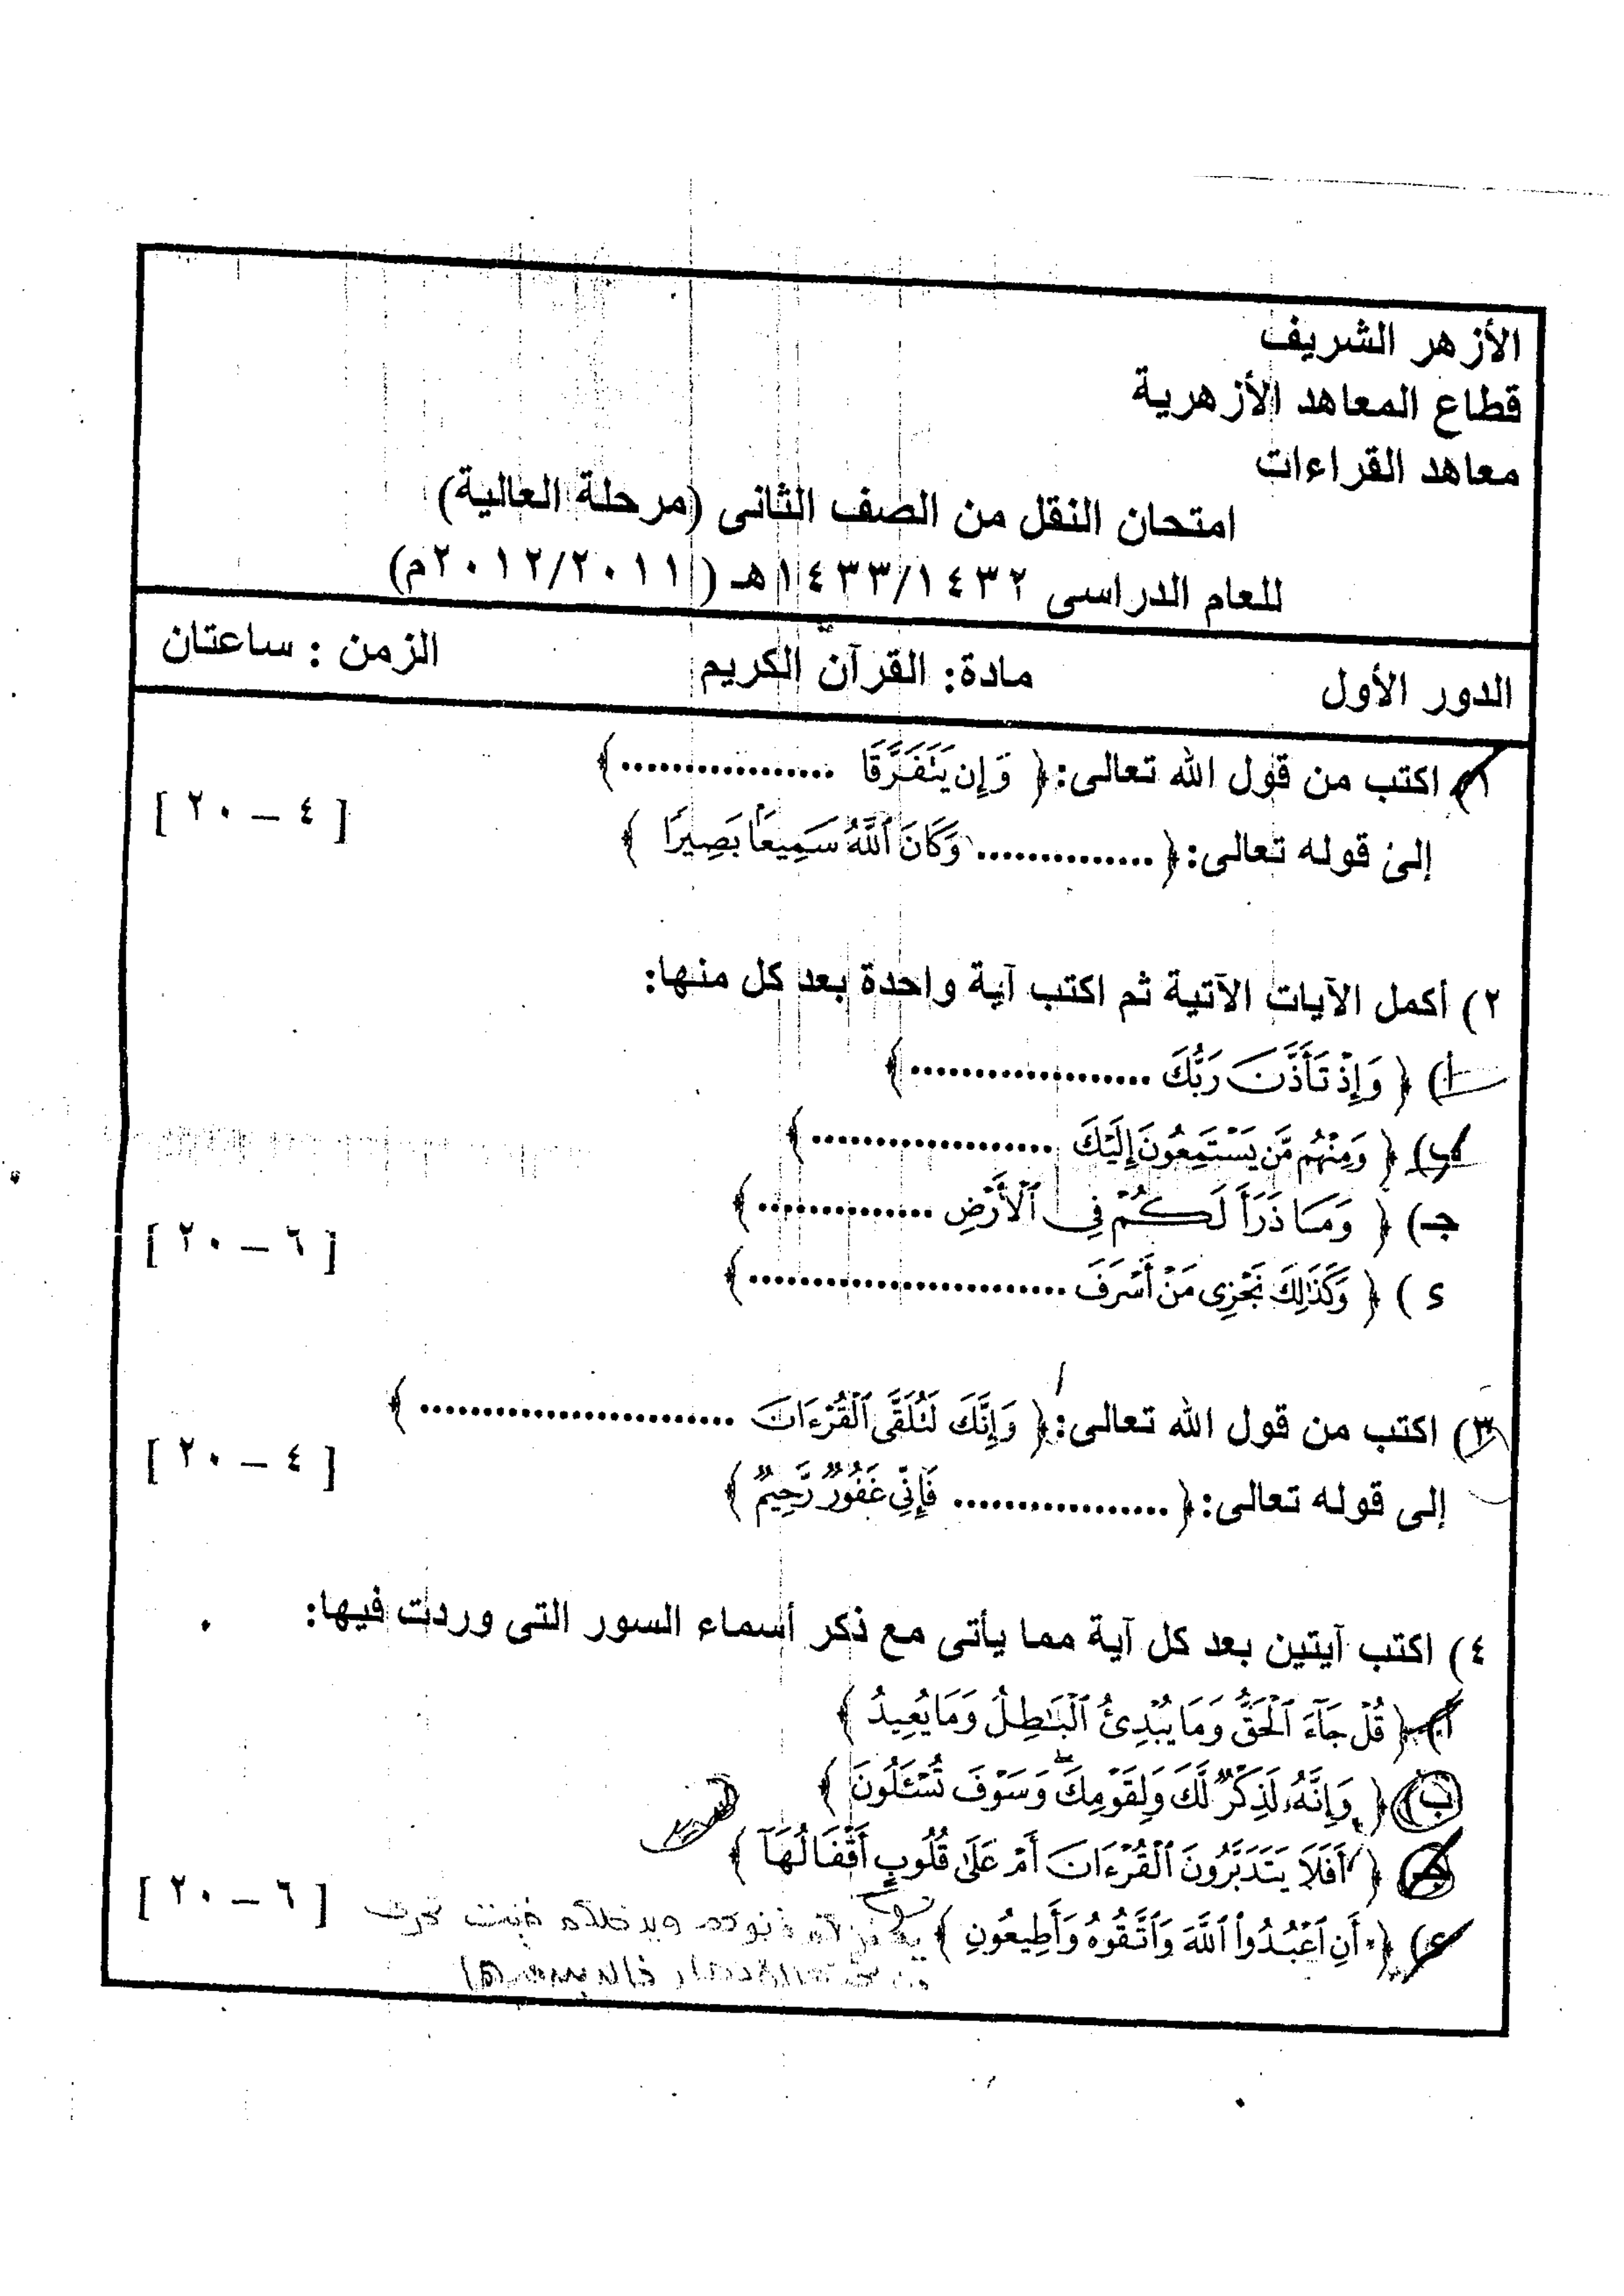 الأزهر الشريف
قطاع المعاهد الأزهرية
معاهد القراءات
امتحان النقل من الصف الثانى (مرحلة العالية)
للعام الدراسى ١٤٣٣/١٤٣٢هـ (٢٠١٢/٢٠١١م)
الدور الأول مادة: القرآن الكريم الزمن : ساعتان
١) اكتب من قول الله تعالى: ﴿ وَإِن يَتَفَرَّقَا ................. ﴾
إلى قوله تعالى: ﴿ .............. وَكَانَ ٱللَّهُ سَمِيعًۢا بَصِيرًا ﴾ [ ٤ – ٢٠ ]
٢) أكمل الآيات الآتية ثم اكتب آية واحدة بعد كل منها:
أ) ﴿ وَإِذْ تَأَذَّنَ رَبُّكَ ................... ﴾
ب) ﴿ وَمِنْهُم مَّن يَسْتَمِعُونَ إِلَيْكَ ................... ﴾
جـ) ﴿ وَمَا ذَرَأَ لَكُمْ فِى ٱلْأَرْضِ .............. ﴾ [ ٦ – ٢٠ ]
ء ) ﴿ وَكَذَٰلِكَ نَجْزِى مَنْ أَسْرَفَ ......................... ﴾
٣) اكتب من قول الله تعالى: ﴿ وَإِنَّكَ لَتُلَقَّى ٱلْقُرْءَانَ ......................... ﴾
إلى قوله تعالى: ﴿ ................. فَإِنِّى غَفُورٌ رَّحِيمٌ ﴾ [ ٤ – ٢٠ ]
٤) اكتب آيتين بعد كل آية مما يأتى مع ذكر أسماء السور التى وردت فيها:
أ) ﴿ قُلْ جَآءَ ٱلْحَقُّ وَمَا يُبْدِئُ ٱلْبَٰطِلُ وَمَا يُعِيدُ ﴾
ب) ﴿ وَإِنَّهُۥ لَذِكْرٌ لَّكَ وَلِقَوْمِكَ ۖ وَسَوْفَ تُسْـَٔلُونَ ﴾
جـ) ﴿ أَفَلَا يَتَدَبَّرُونَ ٱلْقُرْءَانَ أَمْ عَلَىٰ قُلُوبٍ أَقْفَالُهَآ ﴾
ء) ﴿ أَنِ ٱعْبُدُوا۟ ٱللَّهَ وَٱتَّقُوهُ وَأَطِيعُونِ ﴾ [ ٦ – ٢٠ ]